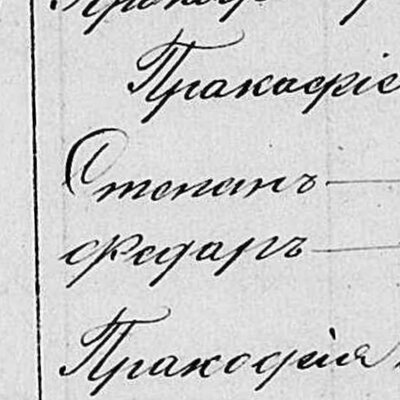 Пракофіе
Степанъ
Федаръ
Пракофія